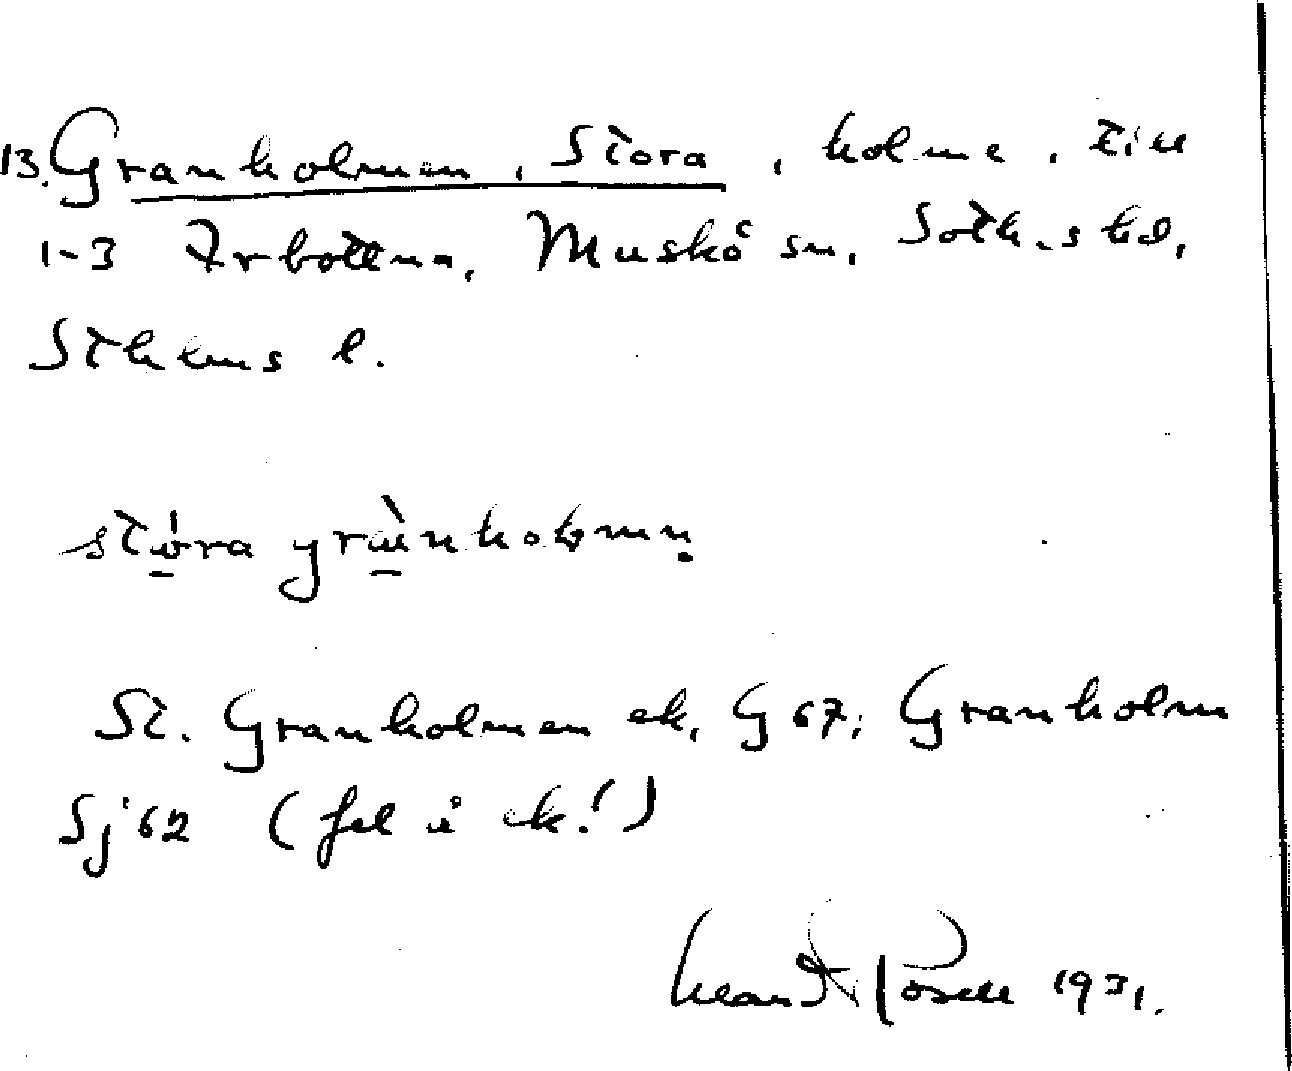 13. Granholmen, Stora, holme, till
1-3 Arbottna, Muskö sn, Soth.s hd,
Sthlms l.
stóra grànholmen
St. Granholmen ek. G 67; Granholm
Sj 62 (fel i ek!)
1931.